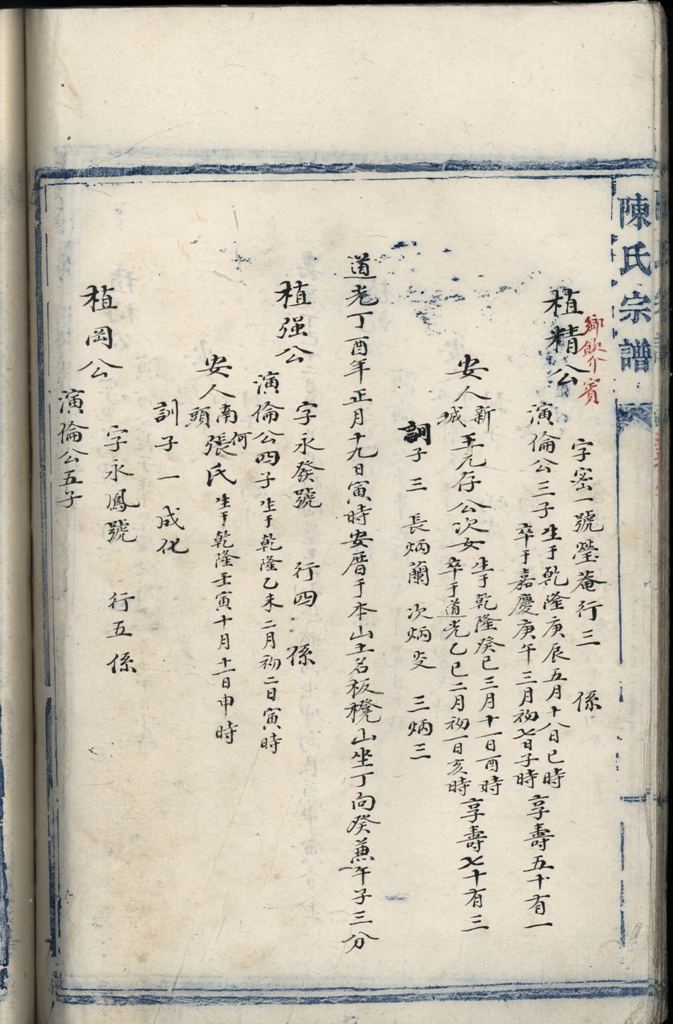 陳氏宗譜
鄉飲介賓
植精公
字密一號瑩菴行三 係
演倫公三子
生于乾隆庚辰五月十八日巳時
卒于嘉慶庚午三月初七日子時
享壽五十有一
安人新城王元存公次女
生于乾隆癸巳三月十一日酉時
卒于道光乙巳二月初一日亥時
享壽七十有三
訓子三 長炳蘭 次炳 三炳三
道光丁酉年正月十九日寅時安厝于本山土名板櫈山坐丁向癸兼午子三分
植强公
字永發號 行四 係
演倫公四子
生于乾隆乙未二月初二日寅時
安人南何頭張氏
生于乾隆壬寅十月十一日申時
訓子一 成化
植岡公
字永鳳號 行五 係
演倫公五子